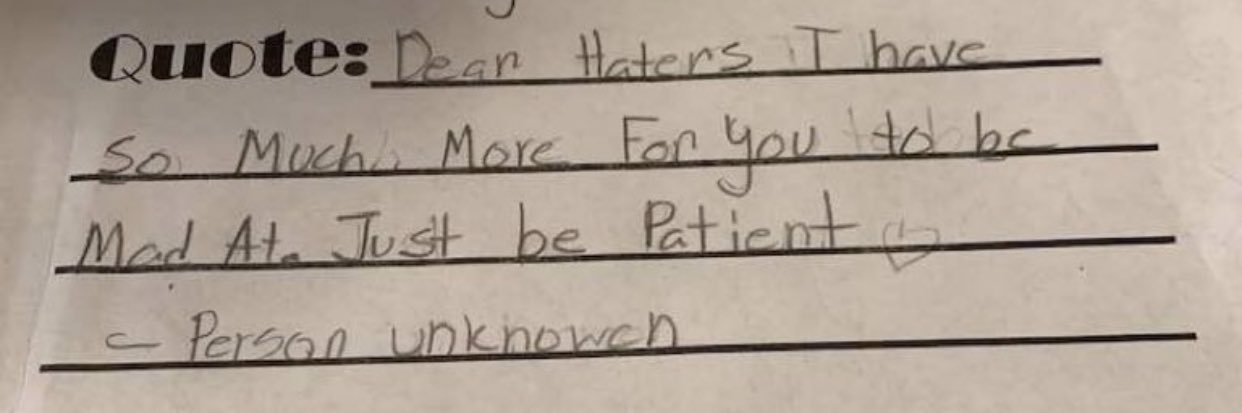 Quote: Dear Haters I have
So Much More For you to be
Mad At. Just be Patient
- Person unknowen